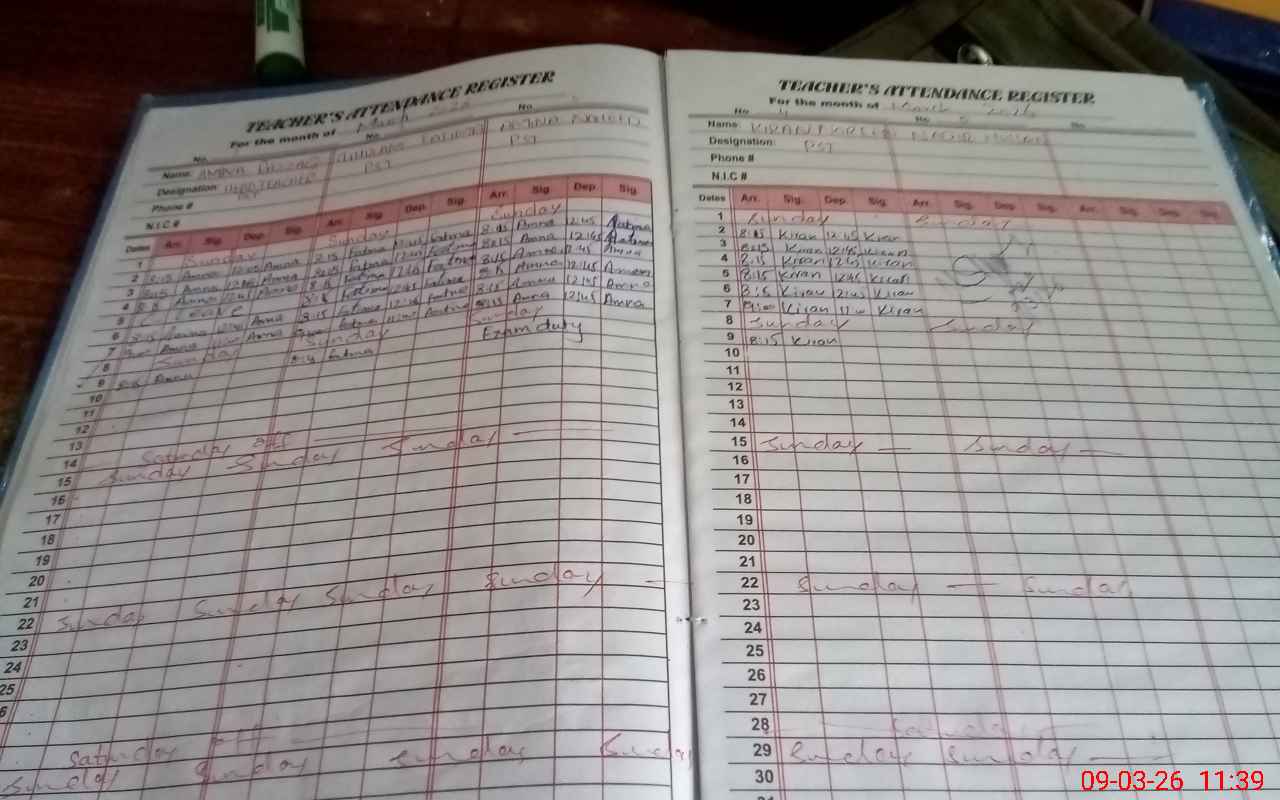 TEACHER'S ATTENDANCE REGISTER
For the month of March 2026
No. No No.
Name: AMNA
Designation: HEAD TEACHER PST PST
PST
Phone #
N.I.C #
Dates Arr. Sig. Dep. Sig. Arr. Sig. Dep. Sig. Arr. Sig. Dep. Sig.
1 Sunday Sunday Sunday
2 8:15 Amna 12:45 Amna 8:15 Fatima 12:45 Fatima 8:15 Amna 12:45 Fatima
3 8:15 Amna 12:45 Amna 8:15 Fatima 12:45 Fatima 8:15 Amna 12:45
4 8:15 Amna 12:45 Amna 8:15 Fatima 12:45 Fatima 8:15 Amna 12:45 Amna
5 Leave 8:15 Fatima 12:45 Fatima 8:15 Amna 12:45 Amna
6 8:15 Amna 12:45 Amna 8:15 Fatima 12:45 Fatima 8:15 Amna 12:45 Amna
7 Amna Amna Fatima Fatima 8:15 Amna 12:45 Amna
8 Sunday Sunday Sunday
9 8:15 Amna 8:15 Fatima Exam duty
10
11
12
13
14 Saturday off
15 Sunday Sunday Sunday
16
17
18
19
20
21
22 Sunday Sunday Sunday Sunday
23
24
25
6
Saturday off
Sunday Sunday Sunday Sunday
TEACHER'S ATTENDANCE REGISTER
For the month of March 2026
No 4 No 5 No
Name: KIRAN NADIR HUSSAIN
Designation: PST
Phone #
N.I.C #
Dates Arr. Sig. Dep. Sig. Arr. Sig. Dep. Sig. Arr. Sig. Dep. Sig.
1 Sunday Sunday
2 8:15 Kiran 12:45 Kiran
3 8:15 Kiran 12:45 Kiran
4 8:15 Kiran 12:45 Kiran
5 8:15 Kiran 12:45 Kiran
6 8:15 Kiran 12:45 Kiran
7 Kiran Kiran
8 Sunday Sunday
9 8:15 Kiran
10
11
12
13
14
15 Sunday Sunday
16
17
18
19
20
21
22 Sunday Sunday
23
24
25
26
27
28 Saturday
29 Sunday Sunday
30
09-03-26 11:39